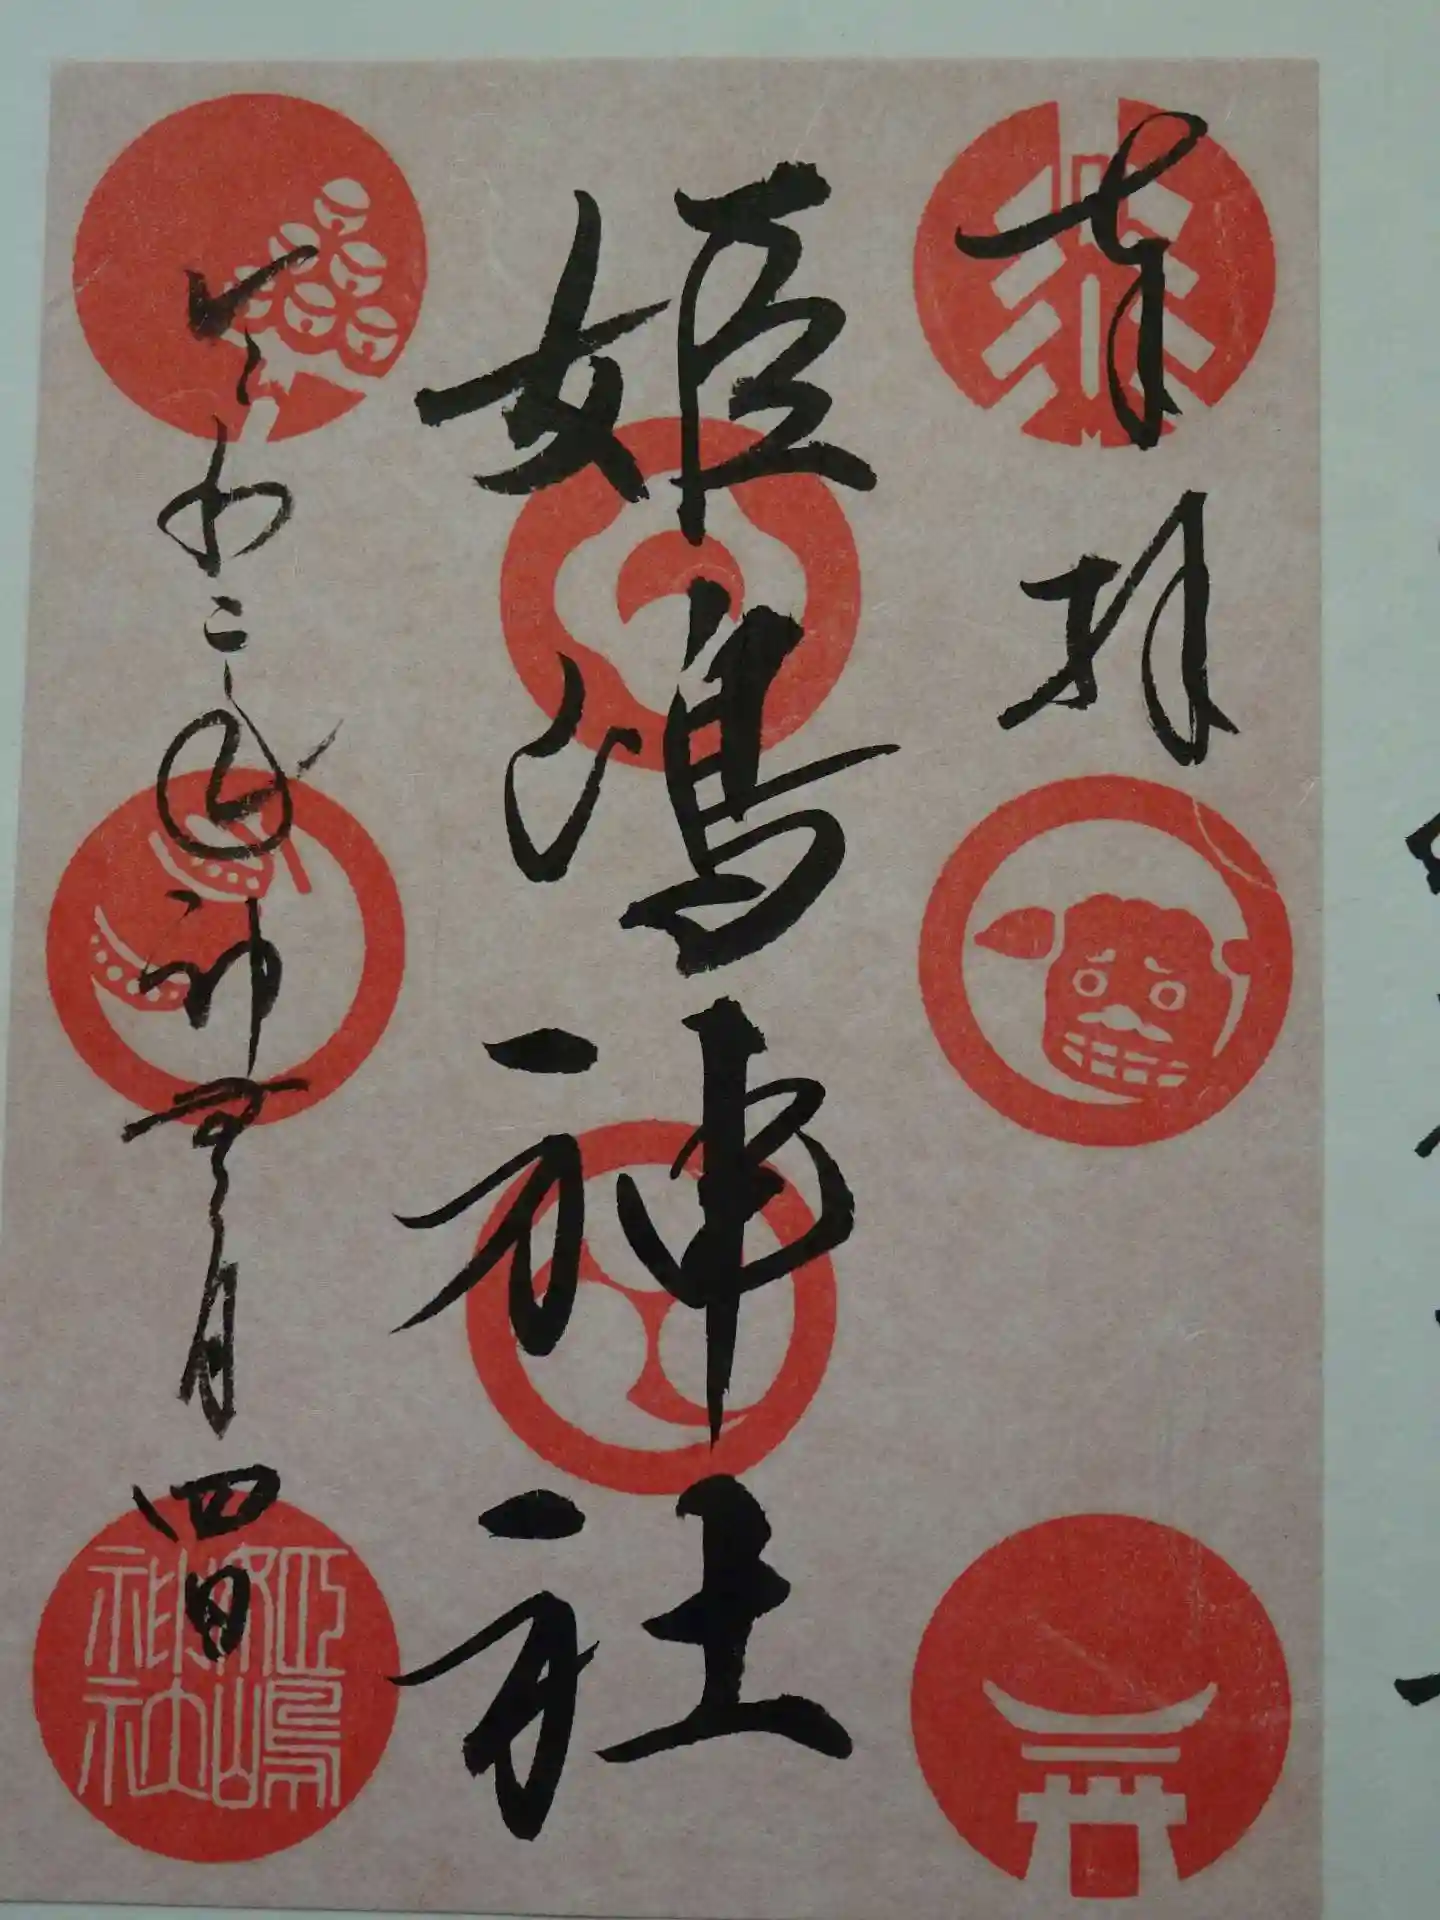 奉拝
姫嶋神社
令和二歳神無月四日
姫嶋
神社